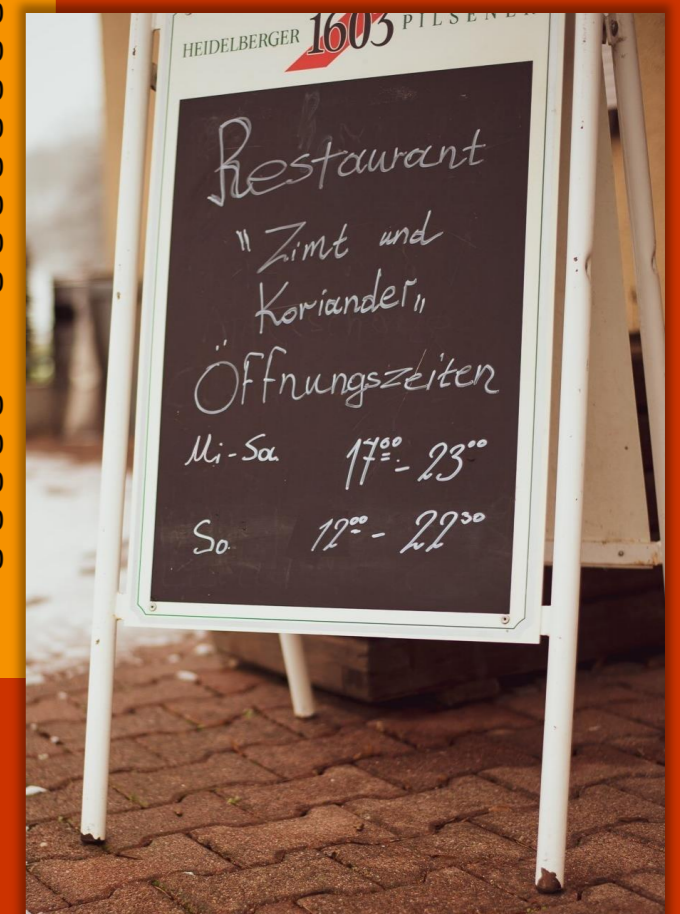 HEIDELBERGER 1603 PILSENER
Restaurant
"Zimt und
Koriander„
Öffnungszeiten
Mi-Sa 17⁰⁰ - 23⁰⁰
So 12⁰⁰ - 22³⁰